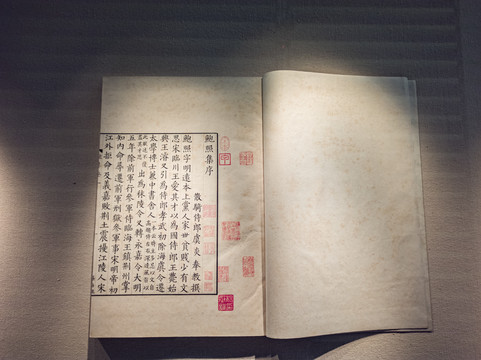 鮑照集序
散騎侍郎虞炎奉教撰
鮑照字明遠本上黨人家世貧賤少有文
思宋臨川王愛其才以為國侍郎王薨始
興王濬又引為侍郎孝武初除海虞令遷
太學博士兼中書舍人
出為秣陵令又轉永嘉令大明
五年除前軍行參軍侍臨海王鎮荊州掌
知內命尋遷前軍刑獄參軍事宋明帝初
江外拒命及義嘉敗荊土震擾江陵人宋